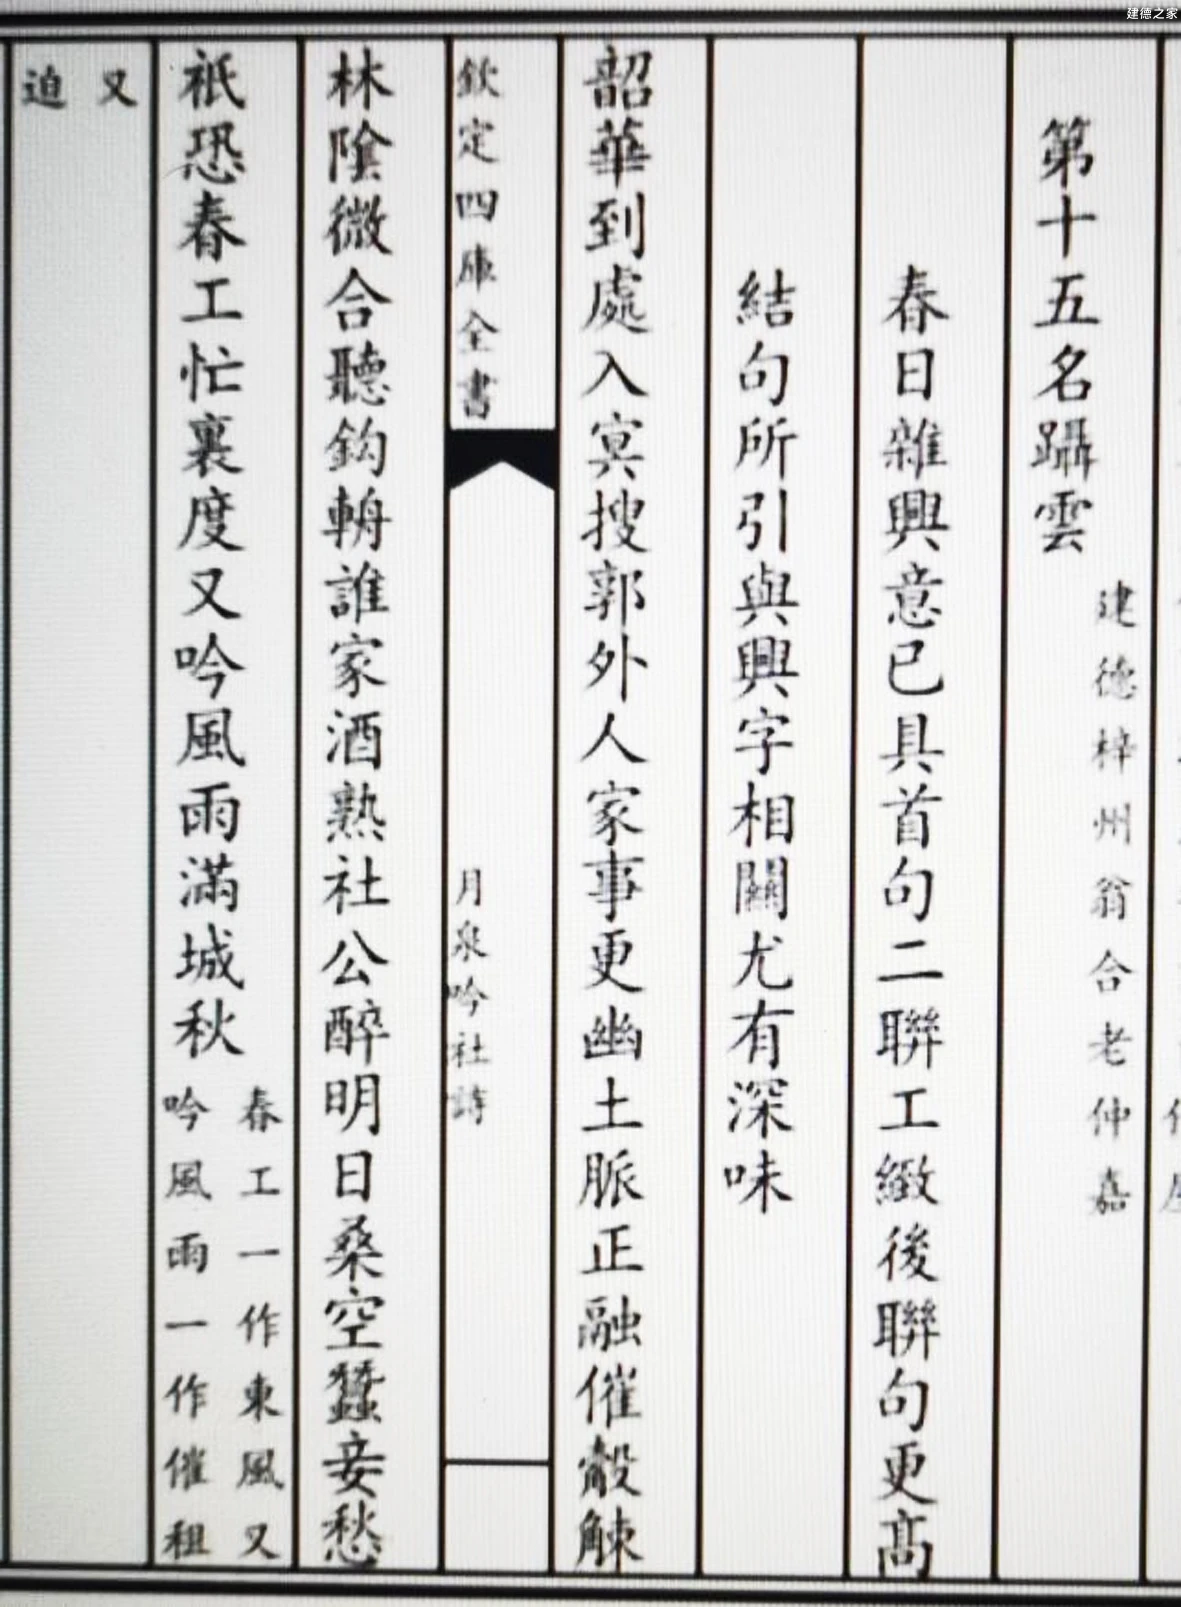 建德之家
第十五名躡雲
建德梓州翁合老仲嘉
春日雜興意已具首句二聯工緻後聯句更髙
結句所引與興字相關尤有深味
韶華到處入冥搜郭外人家事更幽土脈正融催觳觫
欽定四庫全書
月泉吟社詩
林隂微合聽鈎輈誰家酒熟社公醉明日桑空蠶妾愁
祇恐春工忙裏度又吟風雨滿城秋
春工一作東風又
吟風雨一作催租
又
迫